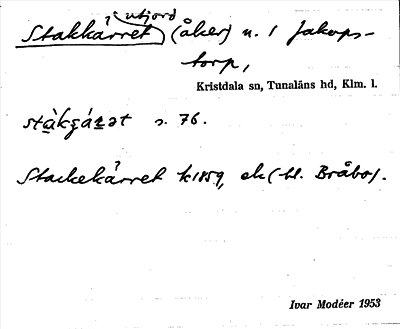 utjord
Stakkärret (åker) n. 1 Jakops-
torp,
Kristdala sn, Tunaläns hd, Klm. l.
stàkɕä́rət s. 76.
Stackekärret k1859, ek (bl. Bråbo).
Ivar Modéer 1953